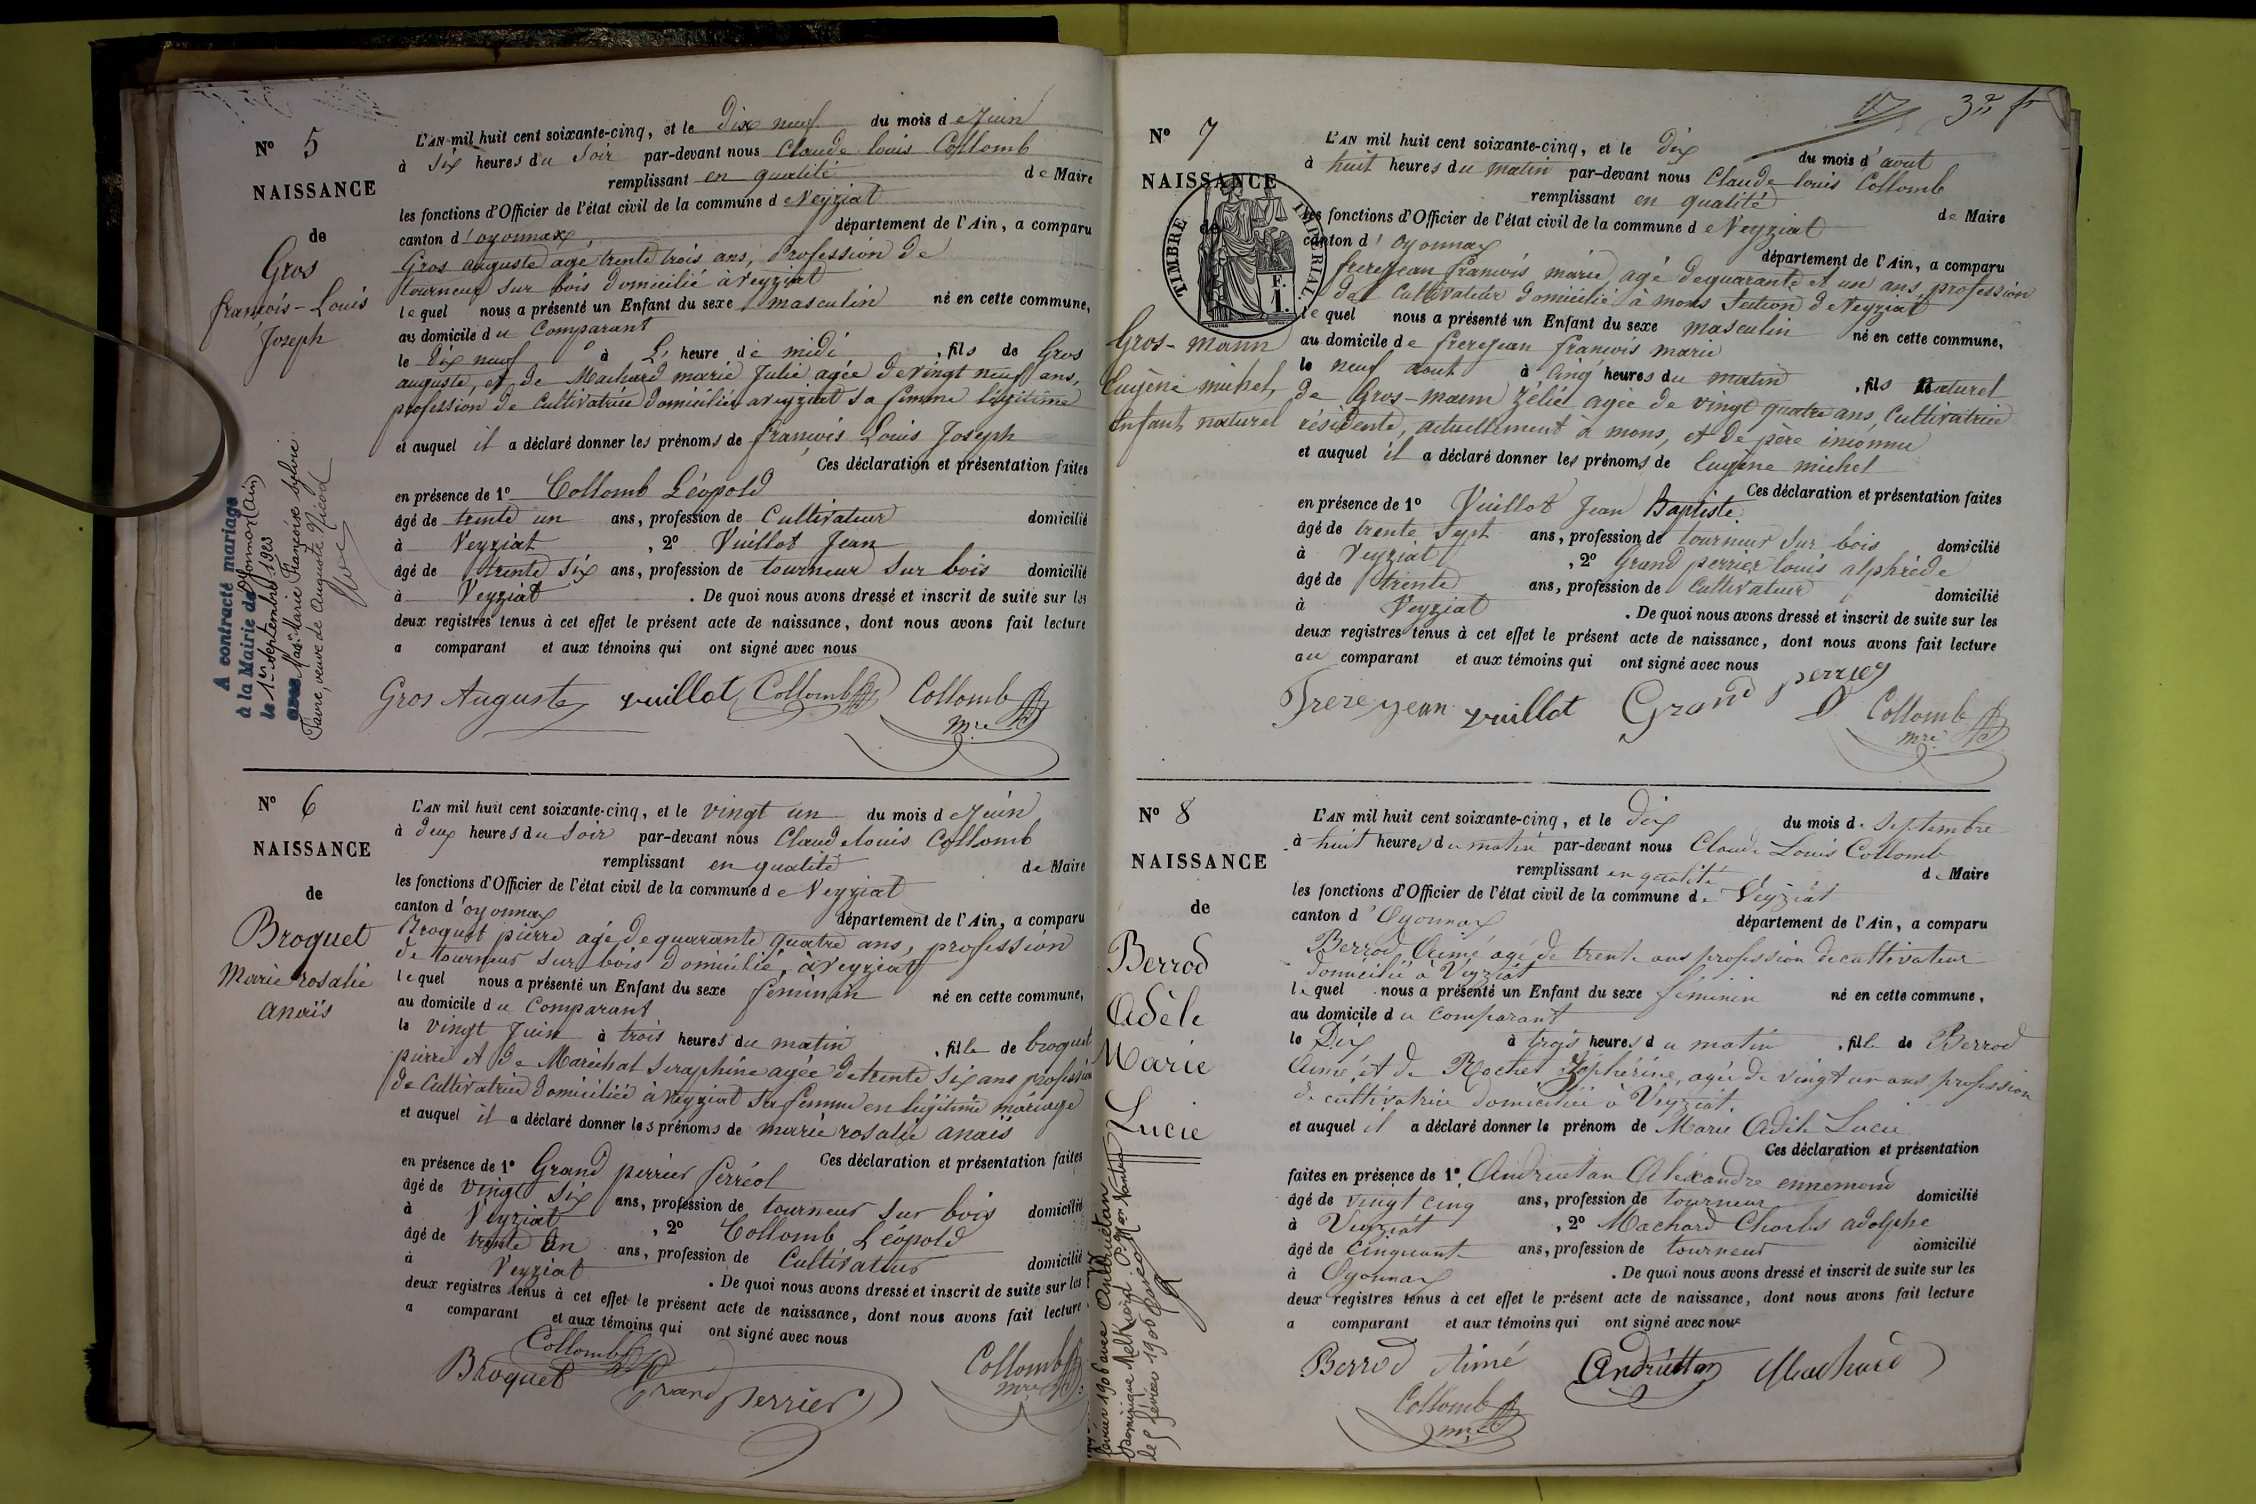 N° 5
NAISSANCE
de
Gros
françois-Louis
Joseph
A contracté mariage
à la Mairie de Oyonnax (Ain)
le 1er septembre 1923
avec Marie Françoise Sylvie
Favre, veuve de Auguste Nicod
L'AN mil huit cent soixante-cinq, et le dix neuf du mois de Juin
à Six heures du Soir par-devant nous Claude louis Collomb
remplissant en qualité de Maire
les fonctions d'Officier de l'état civil de la commune de Veyziat
canton d'oyonnax, département de l'Ain, a comparu
Gros auguste agé trente trois ans, Profession de
tourneur sur bois domicilié à veyziat
lequel nous a présenté un Enfant du sexe masculin né en cette commune,
au domicile du Comparant
le dix neuf à L' heure de midi, fils de Gros
auguste, et de Machard marie Julie agée de vingt neuf ans,
profession de Cultivatrice domiciliée a veyziat sa femme légitime
et auquel il a déclaré donner les prénoms de françois Louis Joseph
Ces déclaration et présentation faites
en présence de 1° Collomb Léopold
âgé de trente un ans, profession de Cultivateur domicilié
à Veyziat, 2° Vuillot Jean
âgé de trente Six ans, profession de tourneur sur bois domicilié
à Veyziat. De quoi nous avons dressé et inscrit de suite sur les
deux registres tenus à cet effet le présent acte de naissance, dont nous avons fait lecture
a comparant et aux témoins qui ont signé avec nous
Gros Auguste vuillot Collomb Collomb
mre
N° 6
NAISSANCE
de
Broquet
Marie rosalie
anaïs
L'AN mil huit cent soixante-cinq, et le vingt un du mois de Juin
à deux heures du Soir par-devant nous Claude louis Collomb
remplissant en qualité de Maire
les fonctions d'Officier de l'état civil de la commune de Veyziat
canton d'oyonnax département de l'Ain, a comparu
Broquet pierre agé de quarante quatre ans, profession
de tourneur sur bois domicilié, à veyziat
lequel nous a présenté un Enfant du sexe féminin né en cette commune,
au domicile du Comparant
le vingt Juin à trois heures du matin, fille de broquet
pierre et de Maréchat Séraphine agée de trente Six ans profession
de Cultivatrice domiciliée à veyziat sa femme en légitime mariage
et auquel il a déclaré donner les prénoms de marie rosalie anaïs
Ces déclaration et présentation faites
en présence de 1° Grand perrier ferréol
âgé de vingt six ans, profession de tourneur sur bois domicilié
à Veyziat, 2° Collomb Léopold
âgé de trente un ans, profession de Cultivateur domicilié
à Veyziat. De quoi nous avons dressé et inscrit de suite sur les
deux registres tenus à cet effet le présent acte de naissance, dont nous avons fait lecture
a comparant et aux témoins qui ont signé avec nous
Collomb
Broquet Grand perrier Collomb
mre
3e f
N° 7
NAISSANCE
de
TIMBRE IMPERIAL
F.
1.
Gros-mann
Eugène michel,
Enfant naturel
L'AN mil huit cent soixante-cinq, et le dix du mois d'aout
à huit heures du matin par-devant nous Claude louis Collomb
remplissant en qualité de Maire
les fonctions d'Officier de l'état civil de la commune de Veyziat
canton d'oyonnax département de l'Ain, a comparu
frerejean françois marie agé de quarante et un ans, profession
de Cultivateur domicilié à mons Section de Veyziat
lequel nous a présenté un Enfant du sexe masculin né en cette commune,
au domicile de frerejean françois marie
le neuf aout à Cinq heures du matin, fils Naturel
de Gros-mann Zélie agée de vingt quatre ans, Cultivatrice
résidente, actuellement à mons, et de père inconnu
et auquel il a déclaré donner les prénoms de Eugène michel
Ces déclaration et présentation faites
en présence de 1° Vuillot Jean Baptiste
âgé de trente Sept ans, profession de tourneur sur bois domicilié
à Veyziat, 2° Grand perrier louis alphrède
âgé de trente ans, profession de Cultivateur domicilié
à Veyziat. De quoi nous avons dressé et inscrit de suite sur les
deux registres tenus à cet effet le présent acte de naissance, dont nous avons fait lecture
au comparant et aux témoins qui ont signé avec nous
Frerejean vuillot Grand perrier Collomb
mre
N° 8
NAISSANCE
de
Berrod
Adèle
Marie
Lucie
février 1906 avec
Dominique Melkior
le 5 février 1906
L'AN mil huit cent soixante-cinq, et le dix du mois de Septembre
à huit heures du matin par-devant nous Claude Louis Collomb
remplissant en qualité de Maire
les fonctions d'Officier de l'état civil de la commune de Veyziat
canton d'Oyonnax département de l'Ain, a comparu
Berrod Aimé agé de trente ans profession de cultivateur
domicilié à Veyziat
lequel nous a présenté un Enfant du sexe féminin né en cette commune,
au domicile du comparant
le Dix à trois heures du matin, fille de Berrod
Aimé, et de Rochet Zéphérine, agée de vingt un ans profession
de cultivatrice domiciliée à Veyziat.
et auquel il a déclaré donner le prénom de Marie Adèle Lucie
Ces déclaration et présentation
faites en présence de 1° Andruétan Alexandre ennemond
âgé de vingt cinq ans, profession de tourneur domicilié
à Veyziat, 2° Machard Charles adolphe
âgé de Cinquante ans, profession de tourneur domicilié
à Oyonnax. De quoi nous avons dressé et inscrit de suite sur les
deux registres tenus à cet effet le présent acte de naissance, dont nous avons fait lecture
a comparant et aux témoins qui ont signé avec nous
Berrod Aimé Andruétan Machard
Collomb
mre